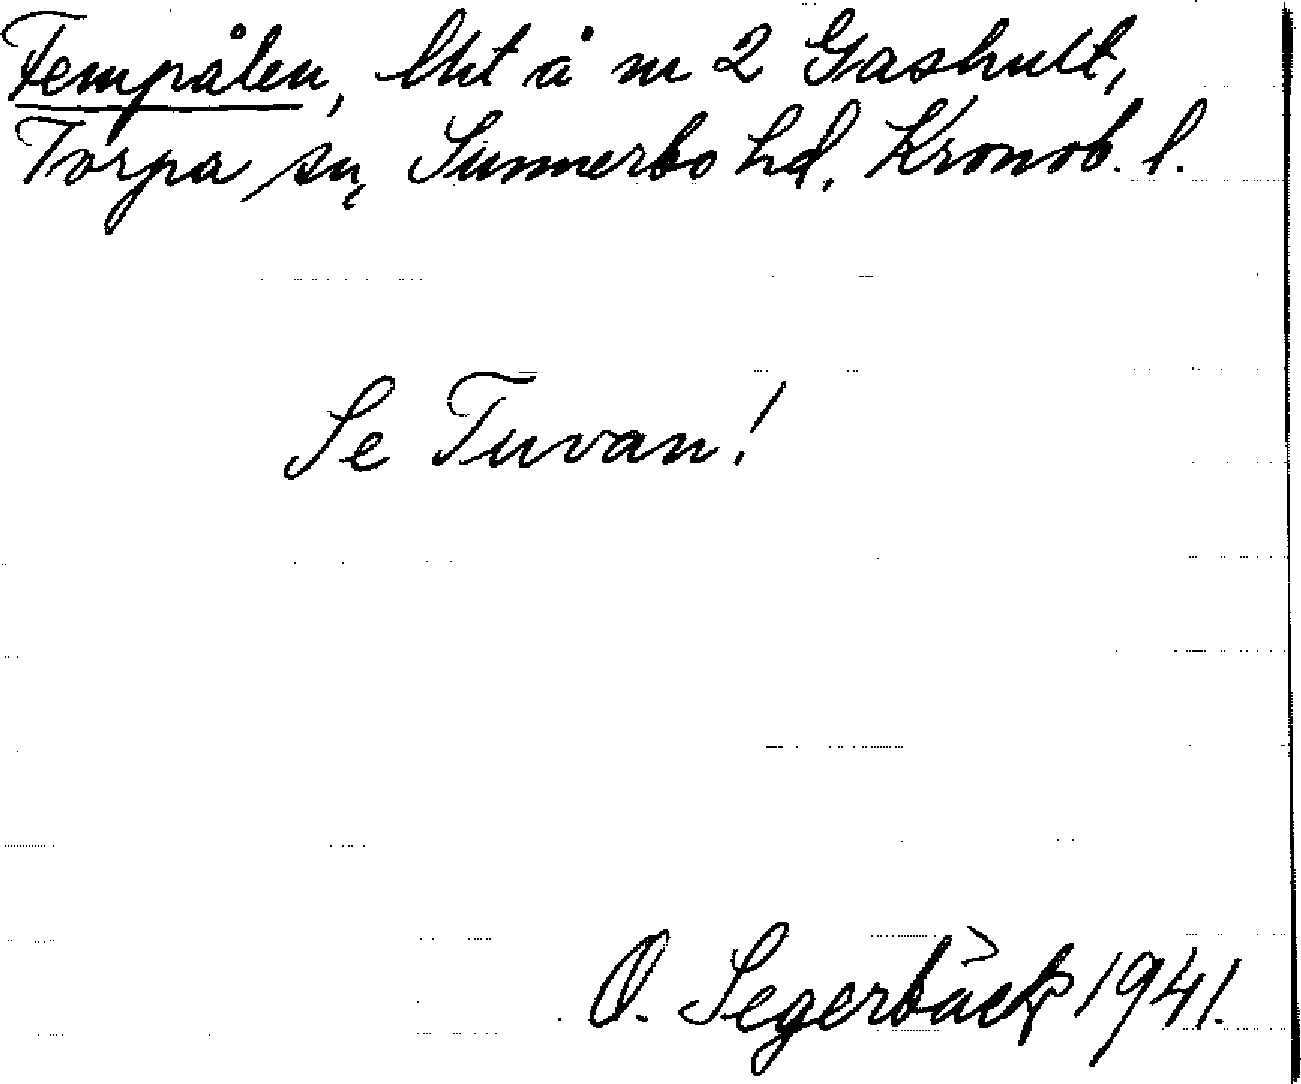 Fempålen, lht å nr 2 Gashult,
Torpa sn, Sunnerbo hd, Kronob. l.
Se Tuvan!
O. Segerbäck 1941.